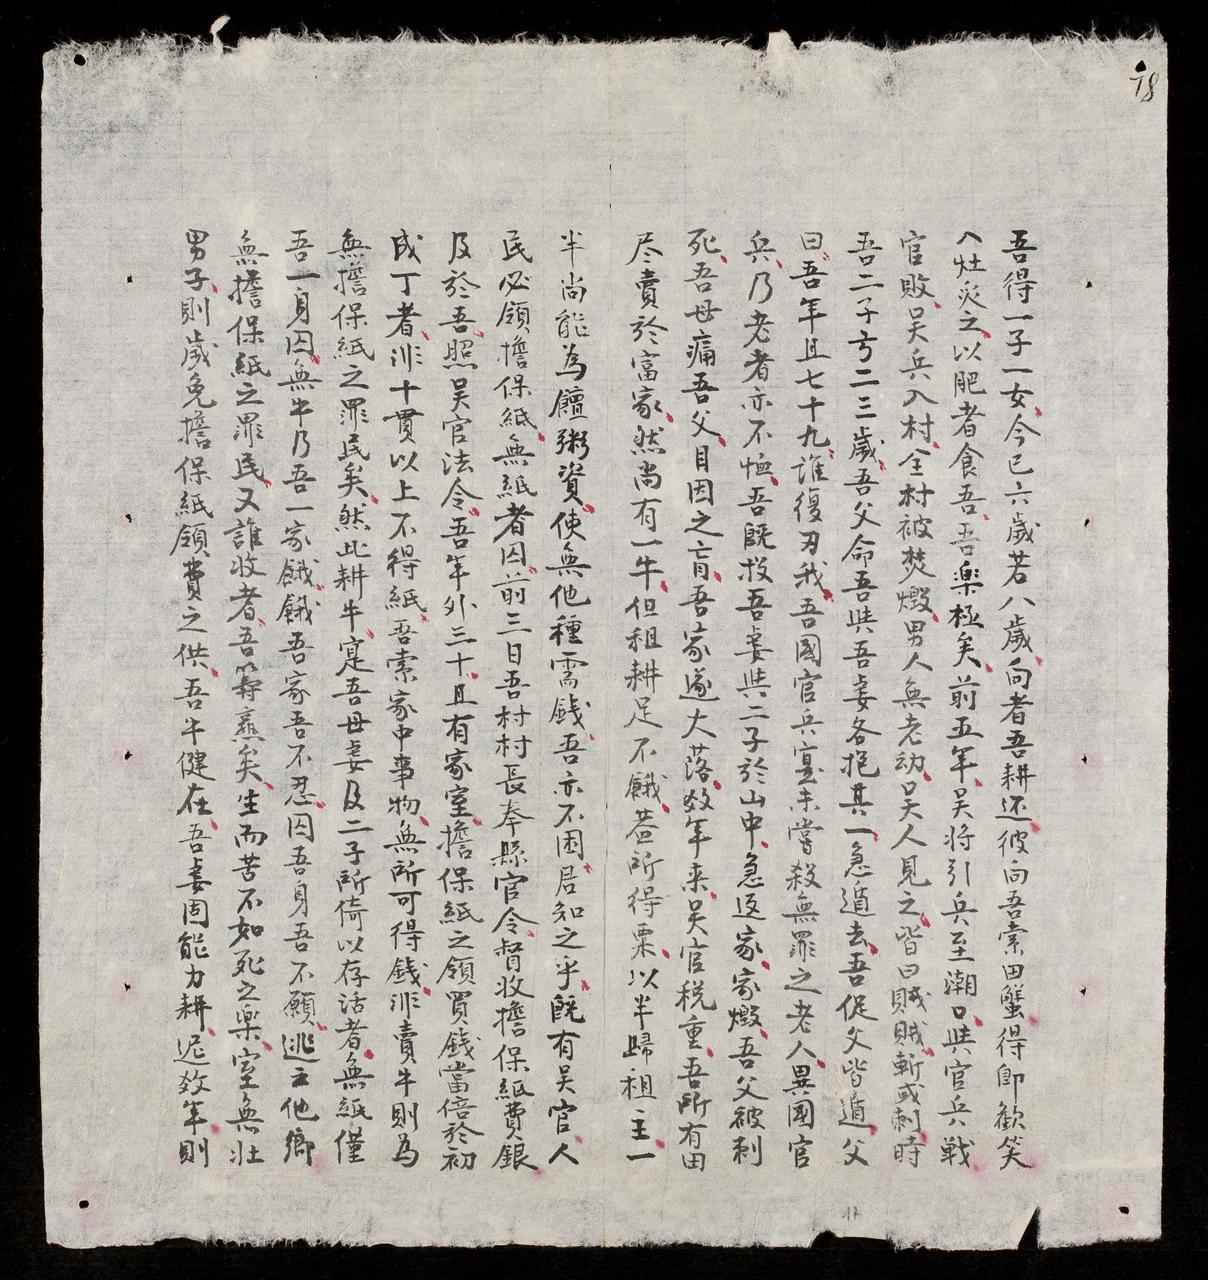 78
吾得一子一女今已六歲若八歲向者吾耕还彼向吾索田蟹得卽歡笑
入灶炙之以肥者食吾吾樂極矣前五年吴将引兵至潮口與官兵戰
官敗吴兵入村全村被焚燬男人無老幼吴人見之皆曰賊賊斬或刺時
吾二子方二三歲吾父命吾與吾妻各抱其一急遁去吾促父皆遁父
曰吾年且七十九誰復刃我吾國官兵寔未嘗殺無罪之老人異國官
兵乃老者亦不恤吾旣投吾妻與二子於山中急返家家燬吾父被刺
死吾母痛吾父目因之盲吾家遂大落数年来吴官税重吾所有田
尽賣於富家然尚有一牛但租耕足不餓盖所得粟以半歸租主一
半尚能為饘粥資使無他種需錢吾亦不困君知之乎旣有吴官人
民必領擔保紙無紙者囚前三日吾村村長奉縣官令督收擔保紙費銀
及於吾照吴官法令吾年外三十且有家室擔保紙之領買錢當倍於初
成丁者非十貫以上不得紙吾索家中事物無所可得錢非賣牛則為
無擔保紙之罪民矣然此耕牛寔吾母妻及二子所倚以存活者無紙僅
吾一身囚無牛乃吾一家餓餓吾家吾不忍囚吾身吾不願逃之他鄉
無擔保紙之罪民又誰收者吾筭熏矣生而苦不如死之樂室無壯
男子則歲免擔保紙領費之供吾牛健在吾妻固能力耕迟数年則